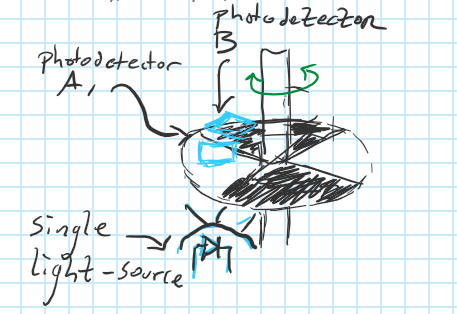 photodetector
B
photodetector
A,
single
light-source